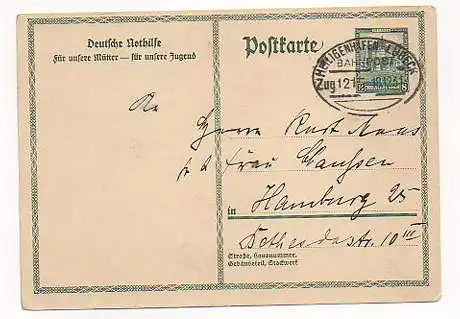 Deutsche Nothilfe
Für unsere Mütter — für unsere Jugend
Postkarte
HEILIGENHAFEN-LÜBECK
BAHNPOST
Zug 121
An
Herrn Kurt Maas
Frau Claussen
in Hamburg 25
Bethesdastr. 10 III
Straße, Hausnummer,
Gebäudeteil, Stockwerk